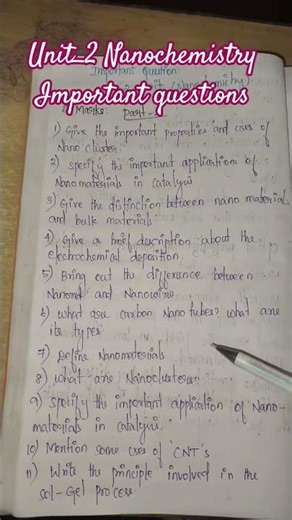 Unit_2 Nanochemistry
Important Question
Important questions
Marks: Part-
1) Give the important properties and uses of
Nano cluster.
2) Specify the important applications of
Nanomaterials in catalysis
3) Give the distinction between nano material
and bulk materials
4) Give a brief description about the
electrochemical deposition
5) Bring out the difference between
Nanorod and Nanowire
6) what are carbon Nano tubes? what are
its types
7) Define Nanomaterials
8) what are Nanocluster
9) specify the important application of Nano-
materials in catalysis.
10) Mention some uses of 'CNT's
11) Write the principle involved in the
sol-Gel process